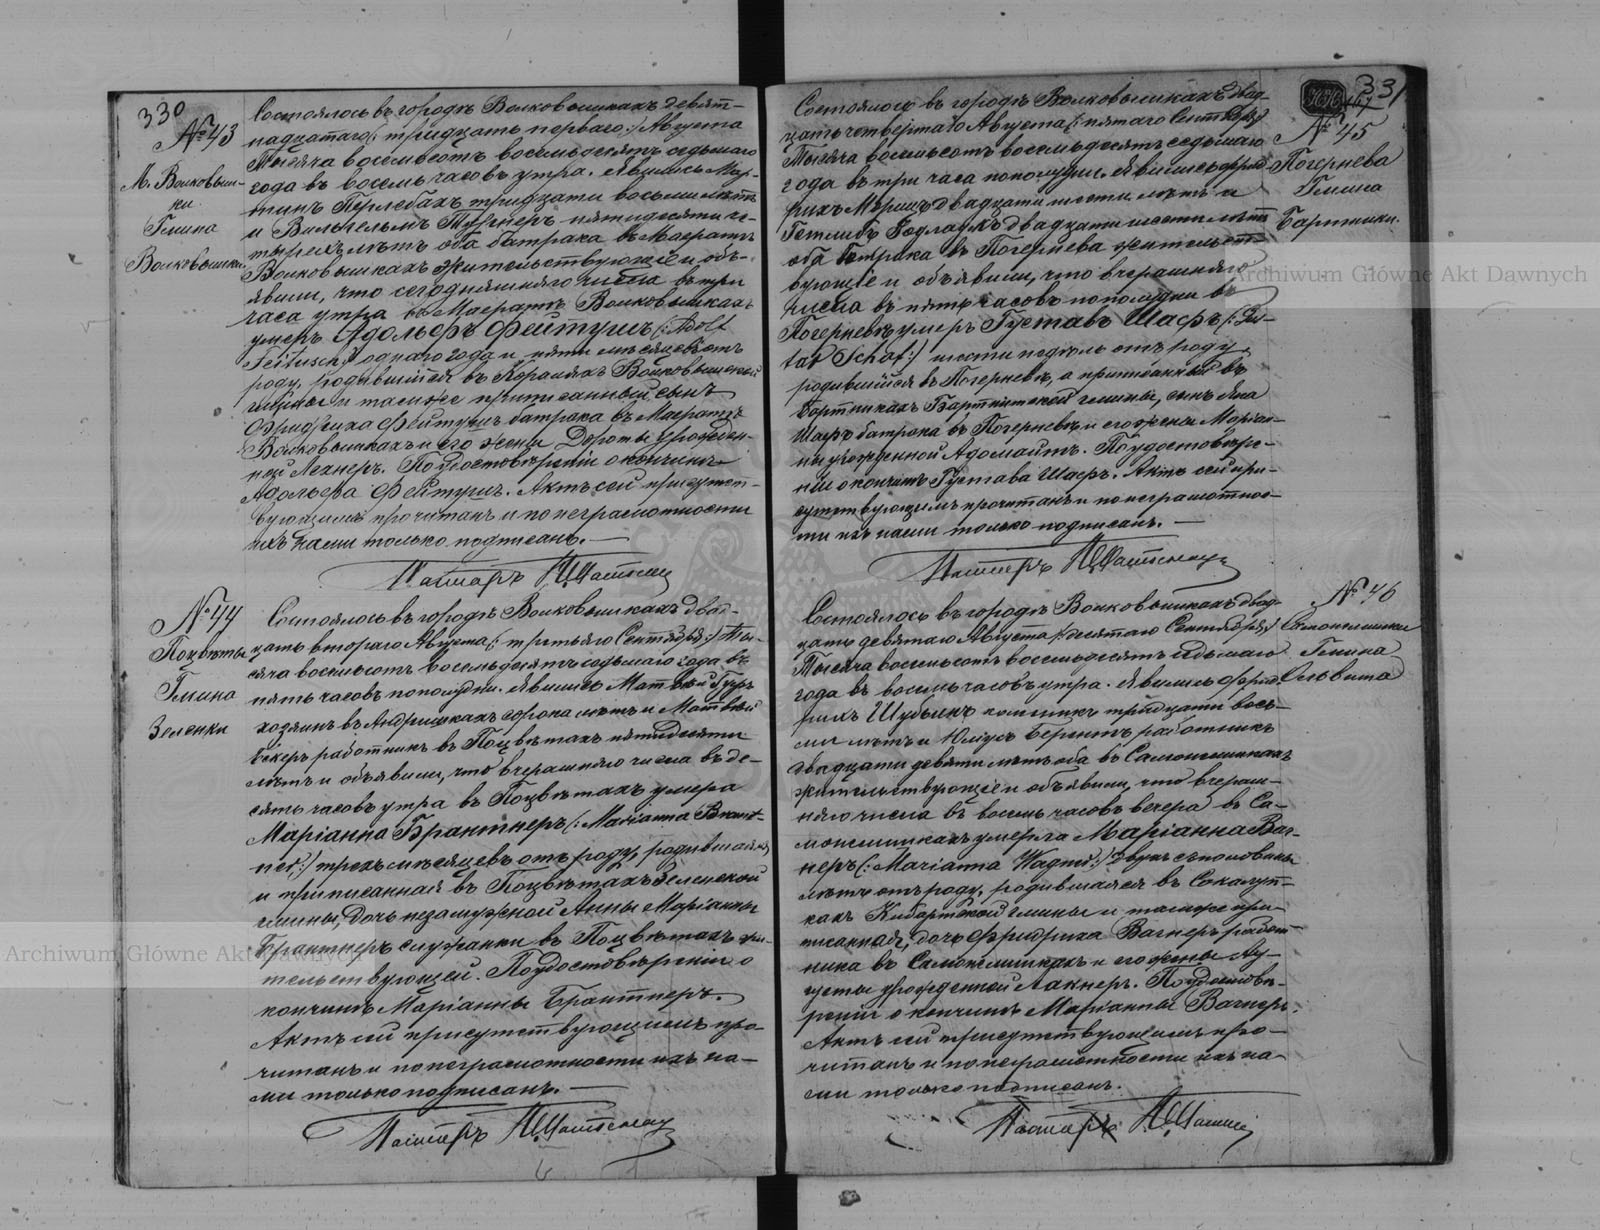 330
№ 43
М. Волковыш-
ки
Гмина
Волковышки
Состоялось въ городѣ Волковышкахъ девят-
надцатаго (: тридцать перваго :) Августа
Тысяча восемьсотъ восемьдесятъ седьмаго
года въ восемь часовъ утра. Явились Мар-
тинъ Перлебахъ тридцати восьми лѣтъ
и Вильгельмъ пятидесяти че-
тырехъ лѣтъ оба батрака въ Маератъ
Волковышкахъ жительствующіе и объ-
явили, что сегодняшняго числа въ три
часа утра въ Маератъ Волковышкахъ
умеръ Адольфъ Фейтушъ (: Adolf
Feitusch :) одного года и пяти мѣсяцевъ отъ
роду, родившійся въ Волковышской
гмины и тамже приписанный, сынъ
Фридриха Фейтушъ батрака въ Маератъ
Волковышкахъ и его жены Дороты урожден-
ной Лехнеръ. По удостовѣреніи о кончинѣ
Адольфа Фейтушъ. Актъ сей присутст-
вующимъ прочитанъ и по неграмотности
ихъ нами только подписанъ. —
Пасторъ
№ 44
Поцвѣты
Гмина
Зеленки
Состоялось въ городѣ Волковышкахъ двад-
цать втораго Августа (: третьяго Сентября :) Ты-
сяча восемьсотъ восемьдесятъ седьмаго года въ
пять часовъ пополудни. Явились Матвѣй
хозяинъ въ Андришкахъ сорока лѣтъ и Матвѣй
Бекеръ работникъ въ Поцвѣтахъ пятидесяти
лѣтъ и объявили, что вчерашняго числа въ де-
сять часовъ утра въ Поцвѣтахъ умерла
Маріанна Брантнеръ (: Marianna Brant-
ner :) трехъ мѣсяцевъ отъ роду, родившаяся
и приписанная въ Поцвѣтахъ Зеленской
гмины, дочь незамужной Анны Маріанны
Брантнеръ служанки въ Поцвѣтахъ жи-
тельствующей. По удостовѣреніи о
кончинѣ Маріанны Брантнеръ.
Актъ сей присутствующимъ про-
читанъ и по неграмотности ихъ на-
ми только подписанъ. —
Пасторъ
331
№ 45
Погернева
Гмина
Бартники.
Состоялось въ городѣ Волковышкахъ двад-
цать четвертаго Августа (: пятаго Сентября :)
Тысяча восемьсотъ восемьдесятъ седьмаго
года въ три часа пополудни. Явились Фрид-
рихъ двадцати шести лѣтъ и
Готлибъ Годлаукъ двадцати шести лѣтъ
оба батрака въ Погернева жительст-
вующіе и объявили, что вчерашняго
числа въ пять часовъ пополудни въ
Погерневѣ умеръ Густавъ Шафъ (: Gus-
tav Schaf :) шести недѣль отъ роду,
родившійся въ Погерневѣ, а приписанный въ
Бартникахъ Бартникской гмины, сынъ Яна
Шафъ батрака въ Погерневѣ и его жены Маріан-
ны урожденной Адомайтъ. По удостовѣре-
ніи о кончинѣ Густава Шафъ. Актъ сей при-
сутствующимъ прочитанъ и по неграмотнос-
ти ихъ нами только подписанъ. —
Пасторъ
№ 46
Самонелишки
Гмина
Ольвита
Состоялось въ городѣ Волковышкахъ двад-
цать девятаго Августа (: десятаго Сентября :)
Тысяча восемьсотъ восемьдесятъ седьмаго
года въ восемь часовъ утра. Явились Фрид-
рихъ тридцати вось-
ми лѣтъ и Юлиусъ Берентъ работникъ
двадцати девяти лѣтъ оба въ Самонелишкахъ
жительствующіе и объявили, что вчераш-
няго числа въ восемь часовъ вечера въ Са-
монелишкахъ умерла Маріанна Ваг-
неръ (: Marianna Wagner :) двухъ съ половиною
лѣтъ отъ роду, родившаяся въ Сокалуп-
кахъ Кибартской гмины и тамже при-
писанная, дочь Фридриха Вагнеръ работ-
ника въ Самонелишкахъ и его жены Ау-
густы урожденной Лакнеръ. По удостовѣ-
реніи о кончинѣ Маріанны Вагнеръ.
Актъ сей присутствующимъ про-
читанъ и по неграмотности ихъ на-
ми только подписанъ.
Пасторъ
Archiwum Główne Akt Dawnych
Archiwum Główne Akt Dawnych